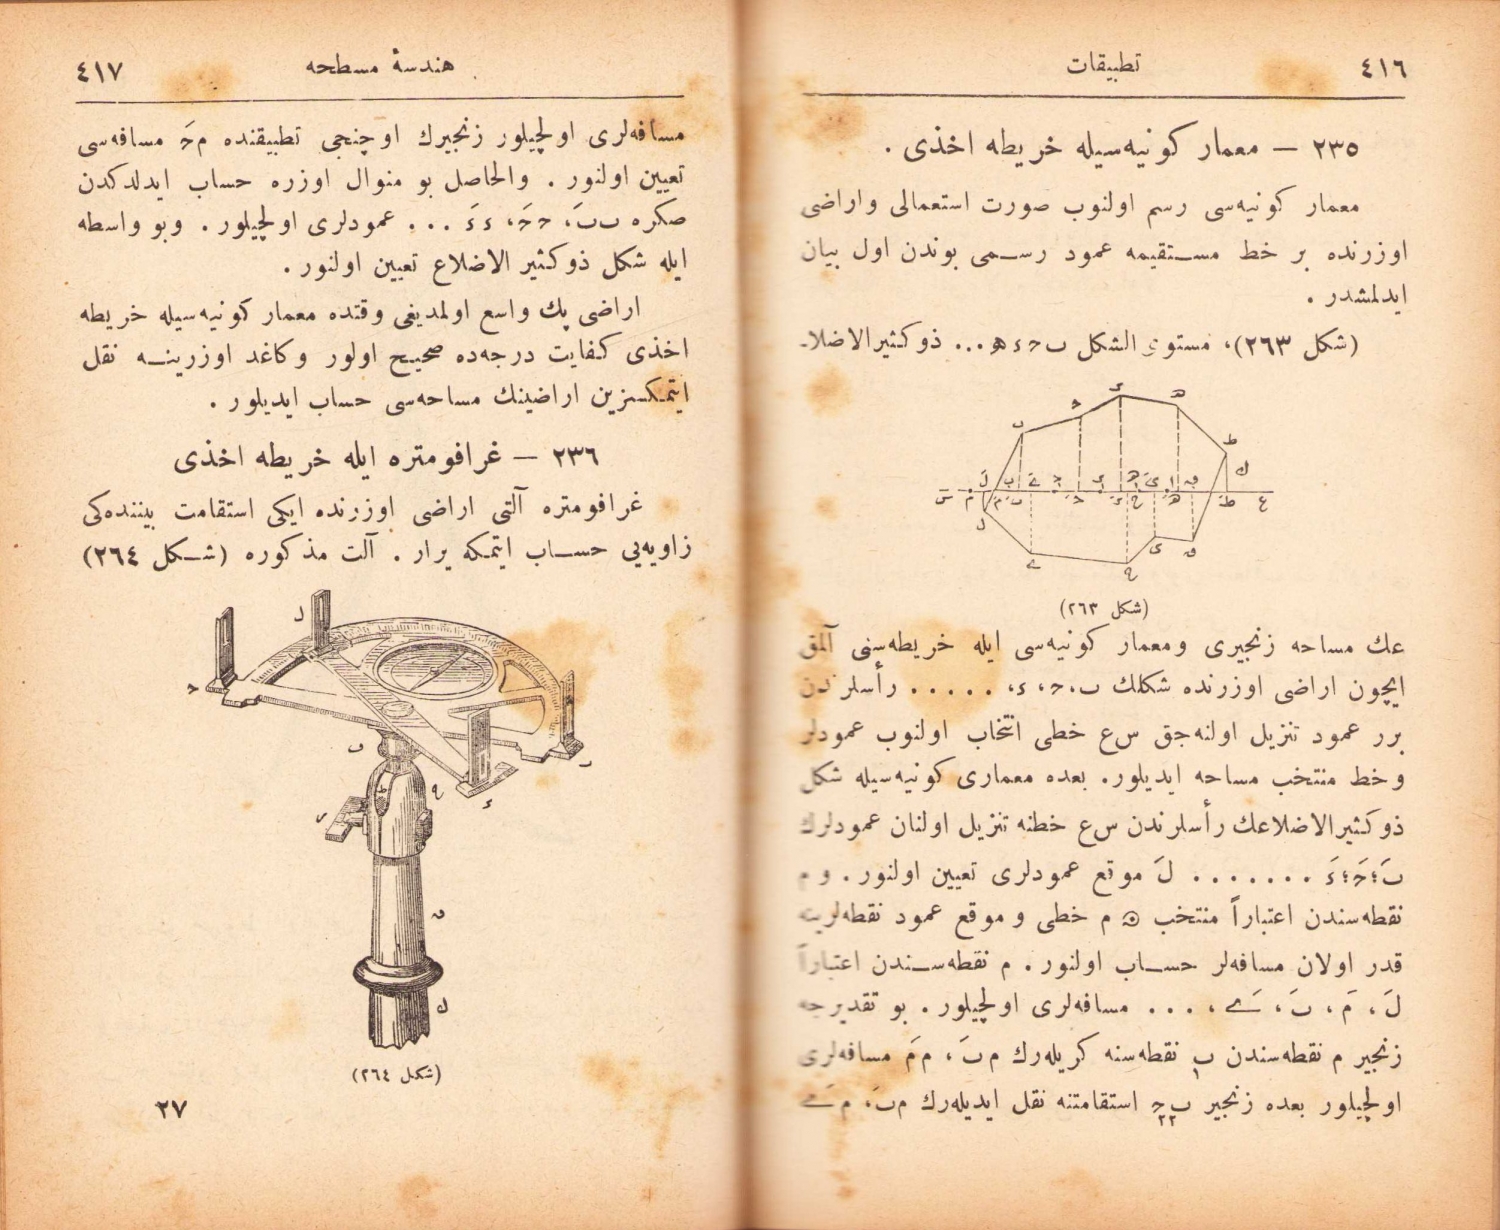 ٤١٦
تطبيقات
٢٣٥ — معمار كونيه‌سيله خريطه اخذى .
معمار كونيه‌سى رسم اولنوب صورت استعمالى واراضى
اوزرنده بر خط مستقيمه عمود رسمى بوندن اول بيان
ايدلمشدر .
(شكل ٢٦٣)، مستوى الشكل ب ح ء ه ... ذوكثيرالاضلا-
(شكل ٢٦٣)
عك مساحه زنجيرى ومعمار كونيه‌سى ايله خريطه‌سنى آلمق
ايچون اراضى اوزرنده شكلك ب، ح، ء، ..... رأسلرندن
برر عمود تنزيل اولنه‌جق س ع خطى انتخاب اولنوب عمودلر
وخط منتخب مساحه ايديلور. بعده معمارى كونيه‌سيله شكل
ذوكثيرالاضلاعك رأسلرندن س ع خطنه تنزيل اولنان عمودلرك
بَ؛ حَ؛ ءَ ....... لَ موقع عمودلرى تعيين اولنور . و م
نقطه‌سندن اعتباراً منتخب م خطى و موقع عمود نقطه‌لرينه
قدر اولان مسافه‌لر حساب اولنور . م نقطه‌سندن اعتباراً
لَ ، مَ ، بَ ، ےَ ، ... مسافه‌لرى اولچيلور . بو تقديرجه
زنجير م نقطه‌سندن ب١ نقطه‌سنه كريله‌رك م بَ ، م مَ مسافه‌لرى
اولچيلور بعده زنجير ب٢ ح٢ استقامتنه نقل ايديله‌رك م بَ، م ےَ
٤١٧
هندسهٔ مسطحه
مسافه‌لرى اولچيلور زنجيرك اوچنجى تطبيقنده م حَ مسافه‌سى
تعيين اولنور . والحاصل بو منوال اوزره حساب ايدلدكدن
صكره ب بَ، ح حَ، ء ءَ ... عمودلرى اولچيلور . وبو واسطه
ايله شكل ذوكثير الاضلاع تعيين اولنور .
اراضى پك واسع اولمديغى وقتده معمار كونيه‌سيله خريطه
اخذى كفايت درجه‌ده صحيح اولور وكاغد اوزرينه نقل
ايتمكسزين اراضينك مساحه‌سى حساب ايديلور .
٢٣٦ — غرافومتره ايله خريطه اخذى
غرافومتره آلتى اراضى اوزرنده ايكى استقامت بيننده‌كى
زاويه‌يى حساب ايتمكه يرار . آلت مذكوره (شكل ٢٦٤)
(شكل ٢٦٤)
٢٧